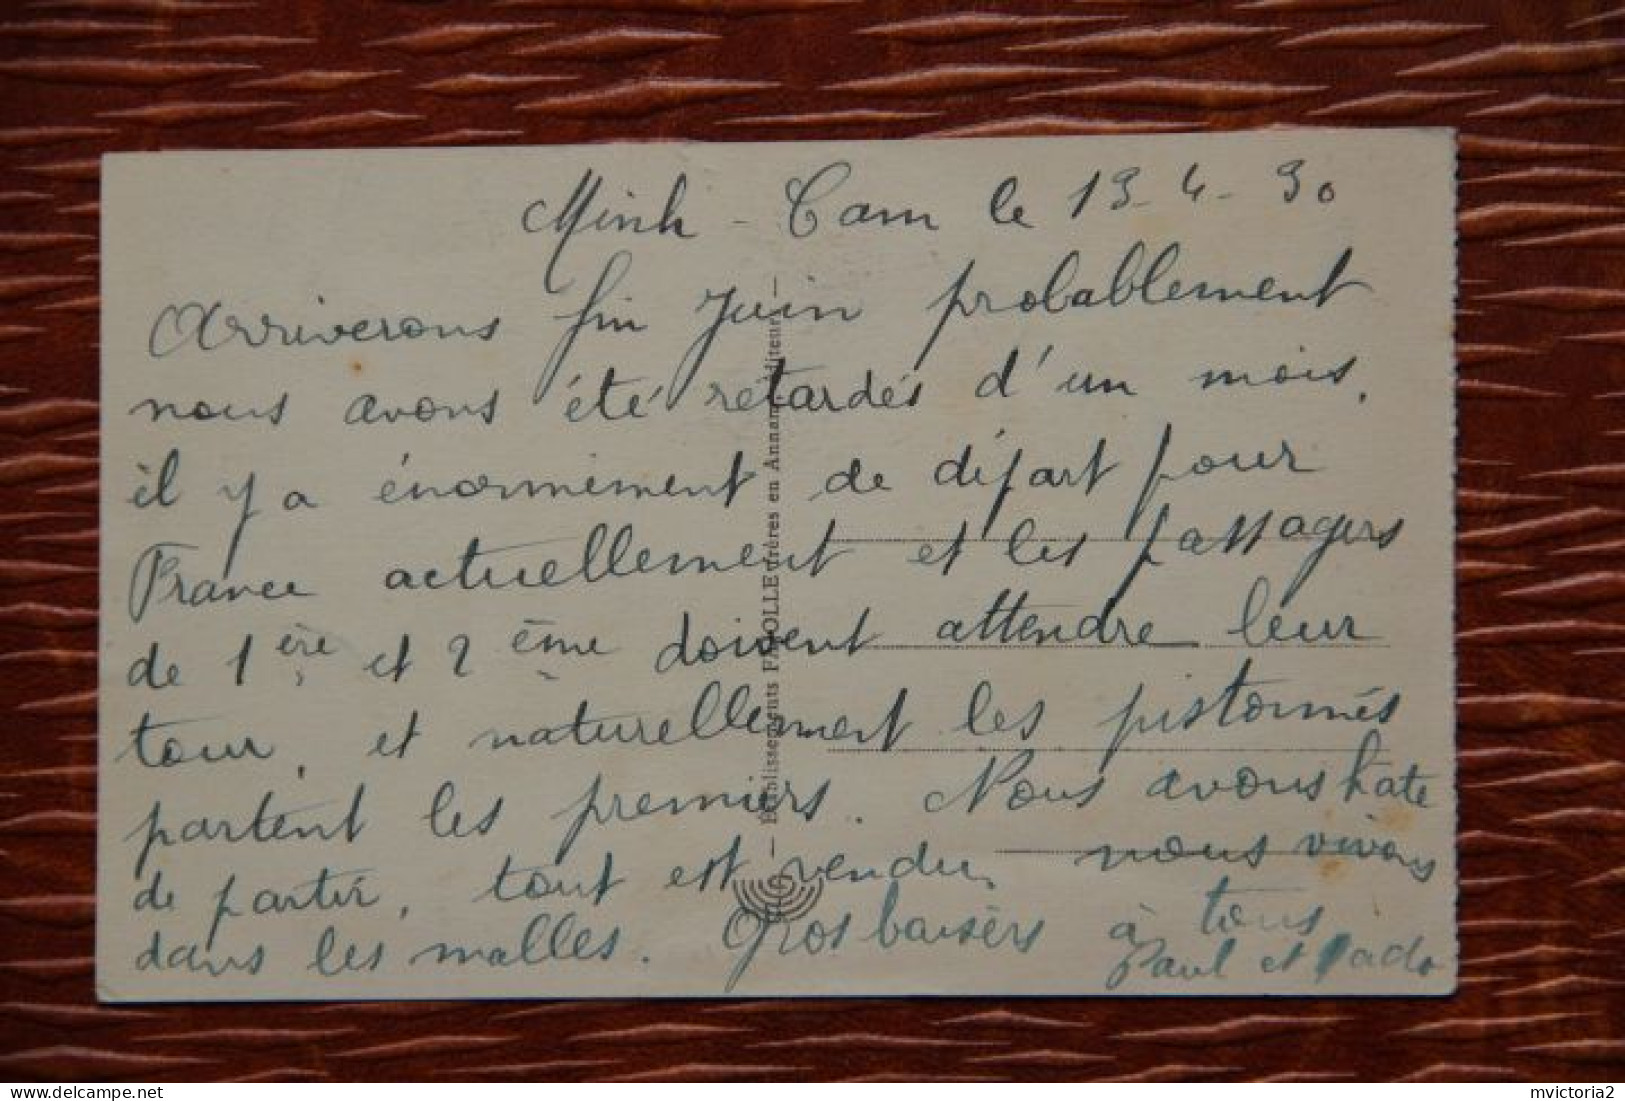 Minh - Cam le 13-4-30
Arriverons fin Juin probablement
nous avons été rétardés d'un mois.
il y a énormément de départ pour
France actuellement et les passagers
de 1ère et 2ème doivent attendre leur
tour, et naturellement les pistonnés
partent les premiers. Nous avons hate
de partir, tout est vendu, nous vivons
dans les malles. Gros baisers à tous
Paul et
— Établissements FERROLLE frères en Annam, éditeurs —
mvictoria2